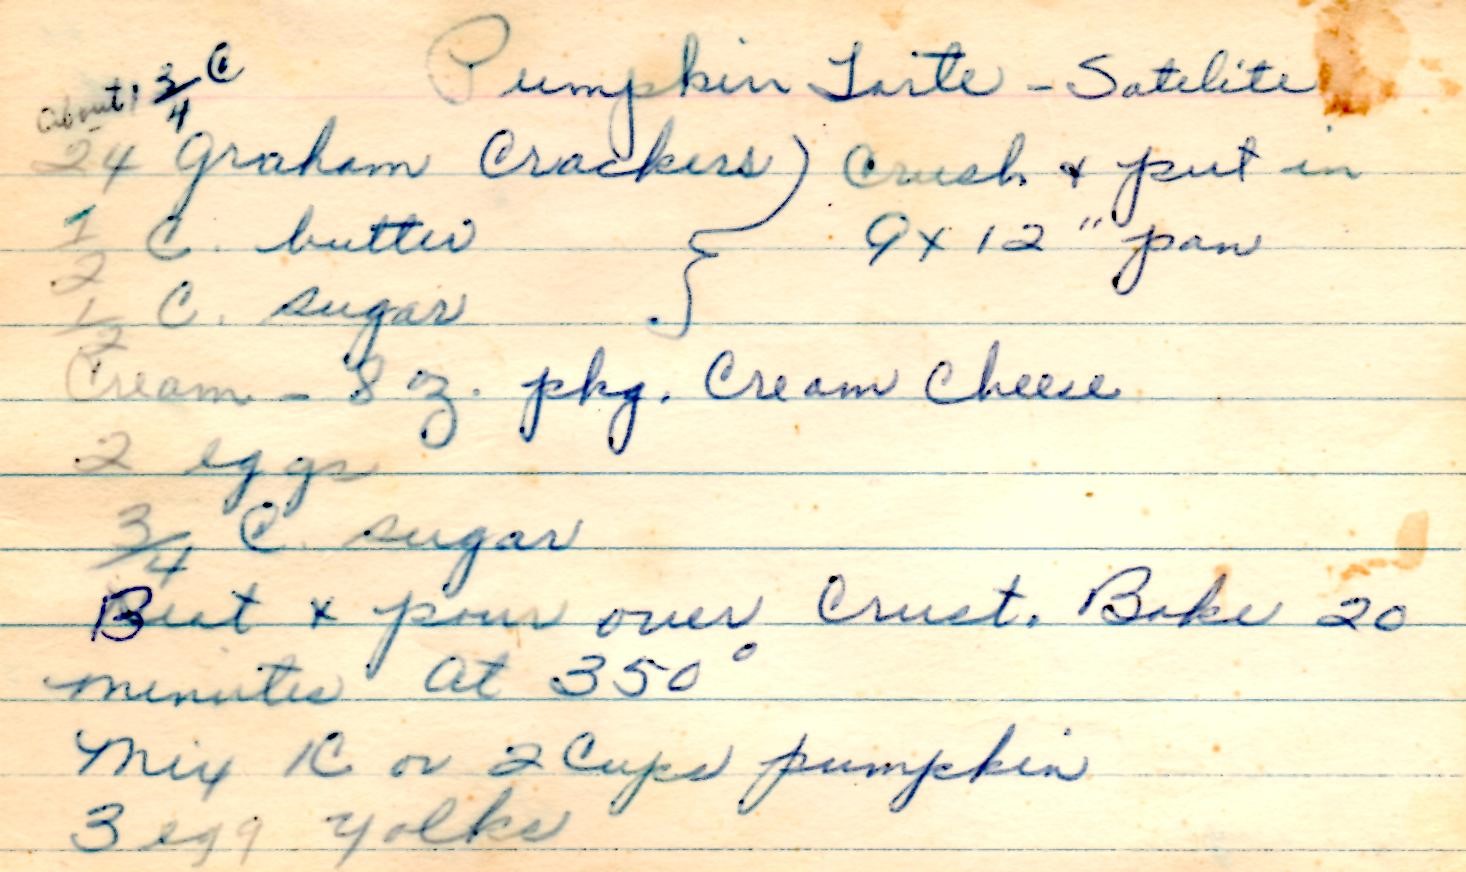 Pumpkin Torte - Satelite
about 1 3/4 C
24 Graham Crackers) Crush & put in
1/2 C. butter } 9 x 12" pan
1/2 C. sugar
Cream - 8 oz. pkg. Cream Cheese
2 eggs
3/4 C. sugar
Beat & pour over Crust. Bake 20
minutes at 350°
Mix 1C or 2 Cups pumpkin
3 egg yolks